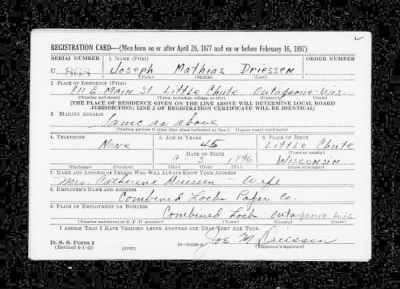 REGISTRATION CARD—(Men born on or after April 28, 1877 and on or before February 16, 1897)
SERIAL NUMBER 1. NAME (Print) ORDER NUMBER
U Joseph Mathias Driessen
(First) (Middle) (Last)
2. PLACE OF RESIDENCE (Print)
811 E. Main St Little Chute Outagamie Wis.
(Number and street) (Town, township, village, or city) (County) (State)
[THE PLACE OF RESIDENCE GIVEN ON THE LINE ABOVE WILL DETERMINE LOCAL BOARD
JURISDICTION; LINE 2 OF REGISTRATION CERTIFICATE WILL BE IDENTICAL]
3. MAILING ADDRESS
Same as above
(Mailing address if other than place indicated on line 2. If same insert word same)
4. TELEPHONE 5. AGE IN YEARS 6. PLACE OF BIRTH
None 45 Little Chute
DATE OF BIRTH (Town or county)
9 - 3 1896 Wisconsin
(Exchange) (Number) (Mo.) (Day) (Yr.) (State or country)
7. NAME AND ADDRESS OF PERSON WHO WILL ALWAYS KNOW YOUR ADDRESS
Mrs. Catherine Driessen - Wife
8. EMPLOYER'S NAME AND ADDRESS
Combined Locks Paper Co.
9. PLACE OF EMPLOYMENT OR BUSINESS
Combined Locks Outagamie Wis
(Number and street or R. F. D. number) (Town) (County) (State)
I AFFIRM THAT I HAVE VERIFIED ABOVE ANSWERS AND THAT THEY ARE TRUE.
D. S. S. Form 1
(Revised 4-1-42) (over) Joe M Driessen
(Registrant's signature)